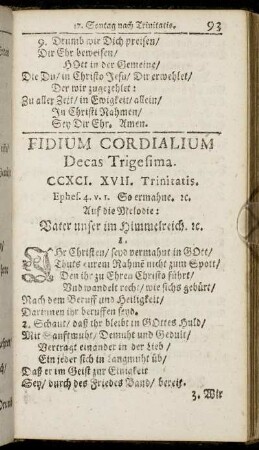 17. Sontag nach Trinitatis. 93
9. Drumb wir Dich preisen/
Dir Ehr beweisen/
HOtt in der Gemeine/
Die Du/ in Christo Jesu/ Dir erwehlet/
Der wir zugezehlet:
Zu aller Zeit/ in Ewigkeit/ allein/
In Christi Nahmen/
Sey Dir Ehr. Amen.
FIDIUM CORDIALIUM
Decas Trigesima.
CCXCI. XVII. Trinitatis.
Ephes. 4. v. 1. So ermahne. ꝛc.
Auf die Melodie:
Vater unser im Himmelreich. ꝛc.
1.
IHr Christen/ seyd vermahnt in GOtt/
Thuts eurem Nahmẽ nicht zum Spott/
Den ihr zu Ehren Christo führt/
Und wandelt recht/ wie sichs gebürt/
Nach dem Beruff und Heiligkeit/
Darinnen ihr beruffen seyd.
2. Schaut/ daß ihr bleibt in GOttes Huld/
Mit Sanftmuht/ Demuht und Gedult/
Vertragt einander in der Lieb/
Ein jeder sich in Langmuht üb/
Daß er im Geist zur Einigkeit
Sey/ durch des Friedes Band/ bereit.
3. Wir